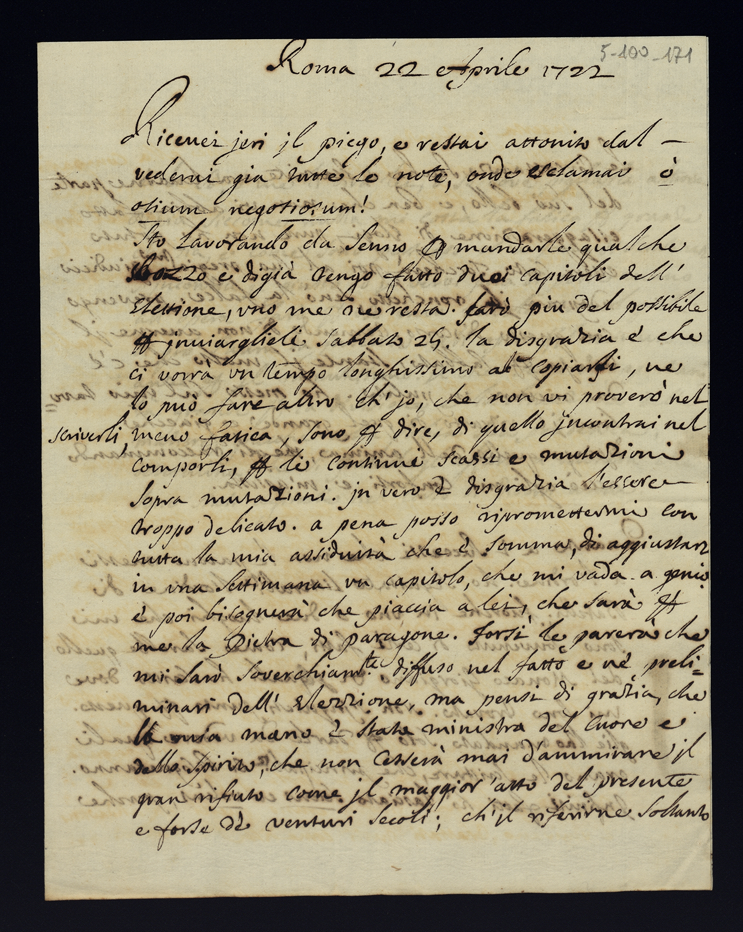 5-100-171
Roma 22 Aprile 1722
Riceuei jeri jl piego, e restai attonito dal
vedermi gia tutte le note, onde esclamai ò
otium negotiosum!
Sto lavorando da senno per mandarle qualche
Bozzo e digià tengo fatto dieci capitoli dell'
elettione, vno me ne resta. farò piu del possibile
per jnuiarglieli Sabbato 25. la disgrazia è che
ci vorra vn tempo longhissimo al copiarsi, ne
lo può fare altro ch' jo, che non vi proverò nel
scriverli, meno fatica, sono per dire, di quello jncontrai nel
comporli, per le continue scassi e mutazioni
sopra mutazioni. jn vero è disgrazia l'essere
troppo delicato. a pena posso ripromettermi con
tutta la mia assiduità che è somma, di aggiustare
in vna settimana vn capitolo, che mi vada a genio
è poi bisognerà che piaccia a lei, che sarà per
me la Pietra di paragone. forsi le parerà che
mi sarò soverchiam.te diffuso nel fatto e ne' preli=
minari dell' elezzione, ma pensi di grazia, che
la mia mano è stata ministra del cuore e
dello spirito, che non cesserà mai d'ammirare jl
gran rifiuto come jl maggior' atto del presente
e forse de venturi secoli; ch' jl riferirne soltanto